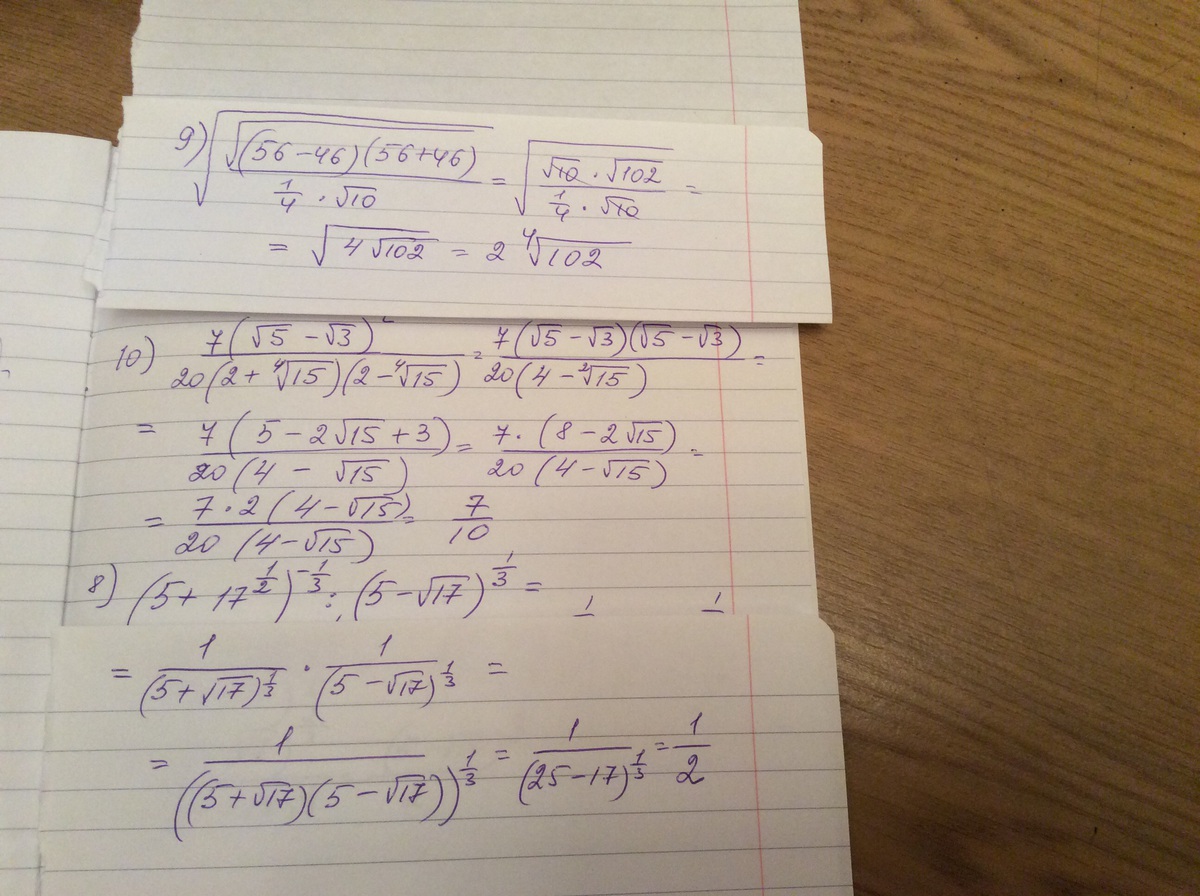 9) √(√((56−46)(56+46)) / (1/4 · √10)) = √((√10 · √102) / (1/4 · √10)) =
= √(4√102) = 2 ⁴√102
10) 7(√5 − √3)² / (20(2 + ⁴√15)(2 − ⁴√15)) = 7(√5 − √3)(√5 − √3) / (20(4 − ²√15)) =
= 7(5 − 2√15 + 3) / (20(4 − √15) = 7·(8 − 2√15) / (20(4 − √15)) =
= 7·2(4 − √15) / (20(4 − √15)) = 7/10
8) (5 + 17^(1/2))^(−1/3) : (5 − √17)^(1/3) =
= 1/(5 + √17)^(1/3) · 1/(5 − √17)^(1/3) =
= 1/((5 + √17)(5 − √17))^(1/3) = 1/(25 − 17)^(1/3) = 1/2